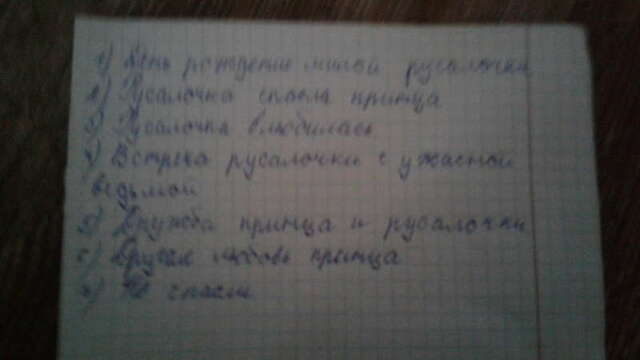 1) День рождение милой русалочки
2) Русалочка спасла принца
3) Русалочка влюбилась
4) Встреча русалочки с ужасной
ведьмой
5) Дружба принца и русалочки
6) Другая любовь принца
7) спасли